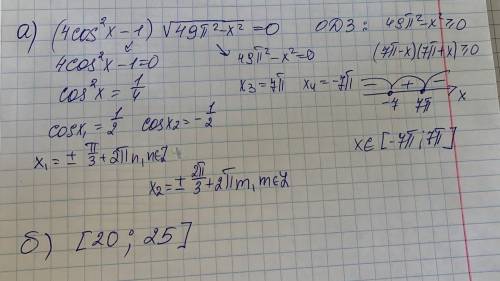 а) (4cos²x−1) √49π²−x² =0 ОДЗ: 49π²−x²≥0
4cos²x−1=0 49π²−x²=0 (7π−x)(7π+x)≥0
cos²x = 1/4 x₃=7π x₄=−7π − + −
−7 7π x
cosx₁=1/2 cosx₂=−1/2 x∈[−7π;7π]
x₁=± π/3+2πn, n∈Z
x₂=± 2π/3+2πm, m∈Z
б) [20; 25]